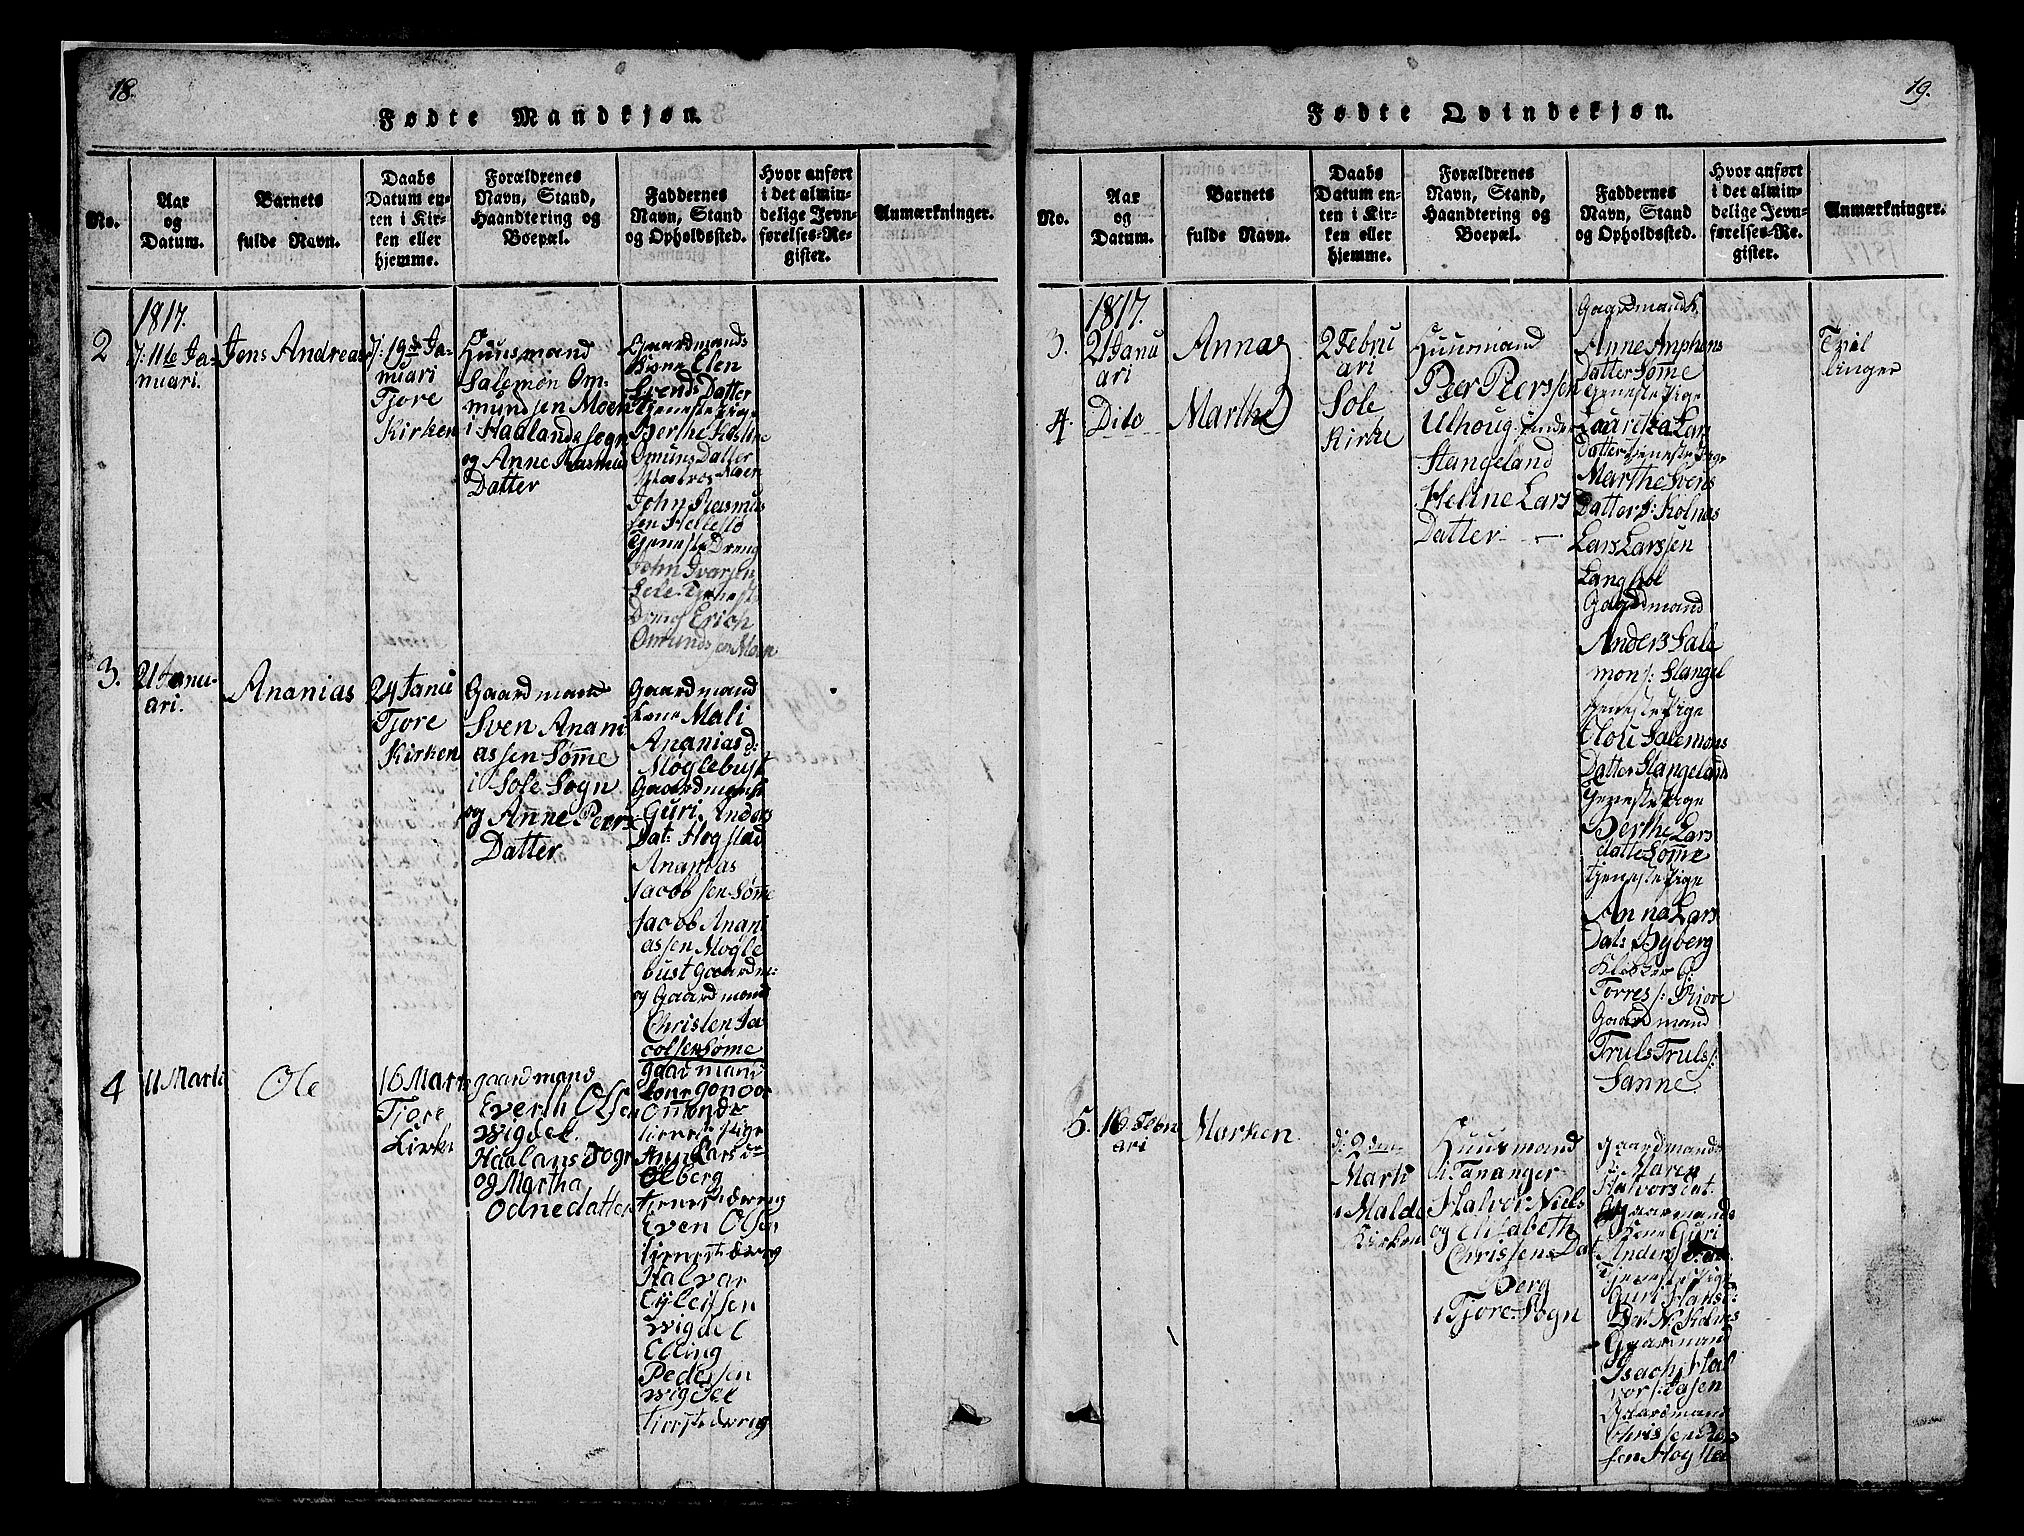 18.
Fødte Mandkjøn.
No.
Aar
og
Datum.
Barnets
fulde Navn.
Daabs
Datum en-
ten i Kir-
ken eller
hjemme.
Forældrenes
Navn, Stand,
Haandtering og
Boepæl.
Faddernes
Navn, Stand
og Opholdssted.
Hvor anført
i det almin-
delige Jevn-
førelses-Re-
gister.
Anmærkninger.
1817.
2
11te Ja-
nuari.
Jens Andreas
19de Ja-
nuari
Tjore
Kirken
Huusmand
Salemon Om-
mundsen Moen
i Haalands Sogn
og Anne Rasmus
Datter
Gaardmands
Kone Elen
Svends Datter
Tjeneste Pige
Berthe Kistine
Omuns Datter
Moen
John Rasmus
sen Hellestø
Tjeneste Dreng
John Ivarsen
Sele Tjeneste
Dreng Erich
Omundssen Moen
3.
21 Janu-
ari.
Ananias
24 Janu
Tjore
Kirken
Gaardmand
Sven Anani
assen Sømme
i Sole Sogn
og Anne Peers
Datter
Gaardmand
Kone Mali
Ananias d:
Møglebust
Gaardmands
Guri Anders
Dat: Hogstad
Ananias
Jacobssen Sømme
Jacob Anani
assen Mogle
bust Gaardm:
og Gaardmand
Christen Ja
cobsen Sømme
4
11 Marti
Ole
16 Marti
Tjore
Kirke
gaardmand
Everth Olsen
Wigdel
Haalans Sogn
og Martha
Odnedatter
gaardmand
kone gonoor
Omonds
tieneste pige
Ann Lars
Ølberg
tienestdæreng
Even Olsen
tienestdæreng
Halvar
Eyleifsen
Wigdel
Elling
Pedersen
Wigdel
tienstdæreng
19.
Fødte Qvindekjøn.
No.
Aar
og
Datum.
Barnets
fulde Navn.
Daabs
Datum en-
ten i Kir-
ken eller
hjemme.
Forældrenes
Navn, Stand,
Haandtering og
Boepæl.
Faddernes
Navn, Stand
og Opholdssted.
Hvor anført
i det almin-
delige Jevn-
førelses-Re-
gister.
Anmærkninger.
1817.
3.
21 Janu
ari
Anna
4.
Dito
Marthe
2 Febru
ari
Sole
Kirke
Huusmand
Peer Peerssen
Ulhoug under
Stangeland
Heline Lars
Datter
Gaardmands K.
Anne Amphens
Datter Sømme
Tjeneste Pige
Lauritza Lars
Datter Tjeneste Pige
Marthe Svens
Datter Kolnes
Lars Larssen
Langhol
Gaardmand
Anders Sale
mons: Stangel
Tjeneste Pige
Olou Salemons
Datter Stangeland
Tjeneste Pige
Berthe Lars
datte Sømme
tjeneste Pige
Anna Lars
Dat: Byberg
Klokker
Torres: Kiove
Gaardmand
Truls Truls:
Sanne.
Tvil
linger
5.
16 Febru
ari
Marken
d: 2den
Marti
i Malde
Kirken
Huusmand
i Tananger
Halvor Niels
og Elisabeth
Chrissens Dat
Berg
i Tjore Sogn
gaardmands
Maren
Halvorsdat
gaarmands
Kone Guri
Anders
Tjeneste Pige
Guri Hans
Dat: N: Kolnes
Gaardmand
Isach Hal
vors: Jasen
Gaardmand
Chrissen Peer
sen Hogstad